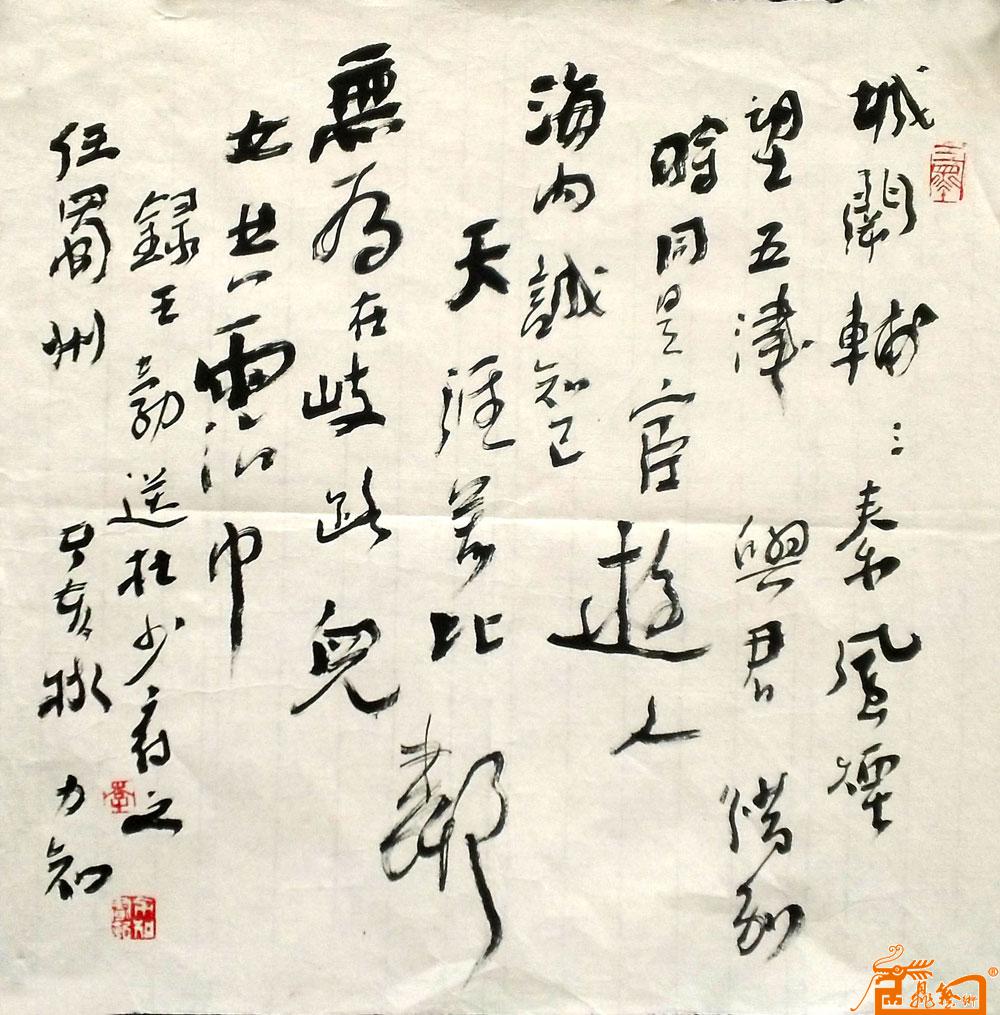 城闕輔三秦風煙
望五津與君惜别
時同是宦遊人
海内誠知己
天涯若比鄰
無為在岐路兒
女共霑巾
録王勃送杜少府之
任蜀州 亥秋 力知